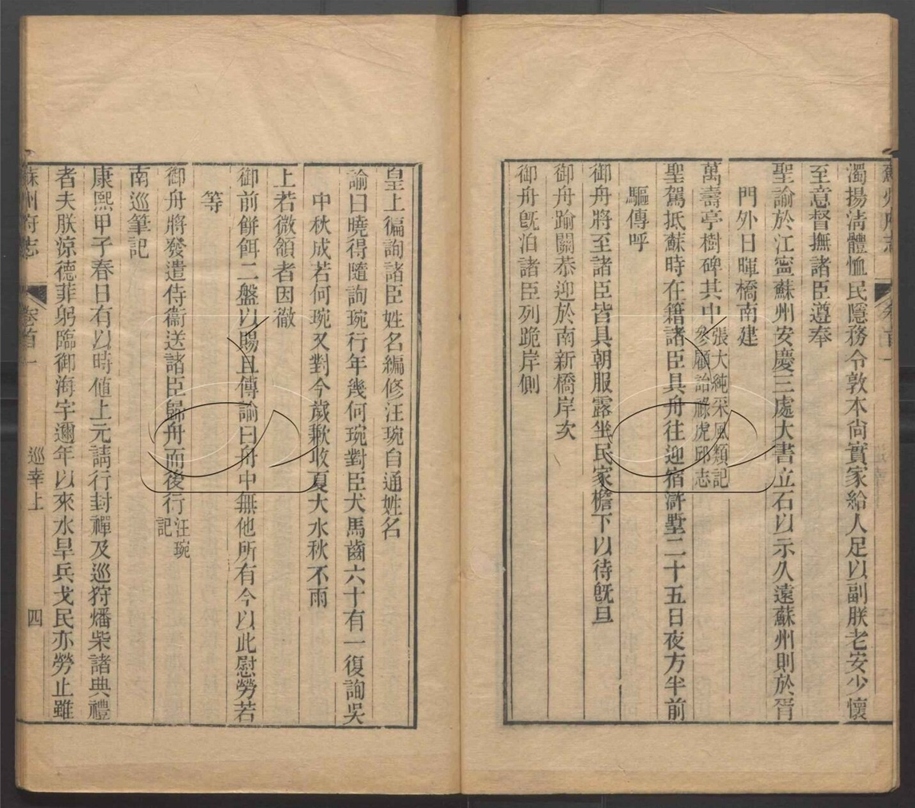 濁揚清體恤民隱務令敦本尚實家給人足以副朕老安少懷
至意督撫諸臣遵奉
聖諭於江寧蘇州安慶三處大書立石以示久遠蘇州則於胥
門外日暉橋南建
萬壽亭樹碑其中張大純采風類記
參顧詒祿虎邱志
聖駕抵蘇時在籍諸臣具舟往迎宿滸墅二十五日夜方半前
驅傳呼
御舟將至諸臣皆具朝服露坐民家檐下以待旣旦
御舟踰關恭迎於南新橋岸次
御舟旣泊諸臣列跪岸側
皇上徧詢諸臣姓名編修汪琬自通姓名
諭曰曉得隨詢琬行年幾何琬對臣犬馬齒六十有一復詢吳
中秋成若何琬又對今歲歉收夏大水秋不雨
上若微頷者因徹
御前餅餌二盤以賜且傳諭曰舟中無他所有今以此慰勞若
等
御舟將發遣侍衞送諸臣歸舟而後行汪琬
記
南巡筆記
康熙甲子春日有以時値上元請行封禪及巡狩燔柴諸典禮
者夫朕涼德菲躬臨御海宇邇年以來水旱兵戈民亦勞止雖
蘇州府志
卷首一
巡幸上
四